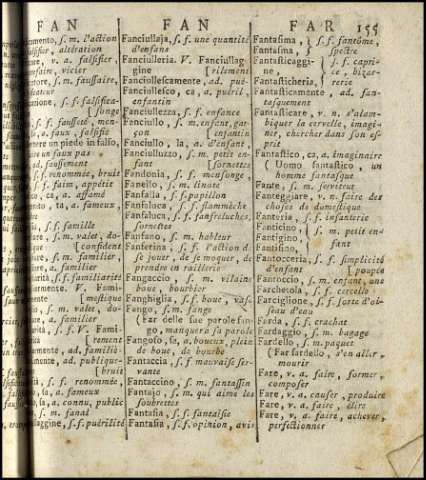 FAN FAN FAR 155
mento, s. m. l'action
falsifier, altération
v. a. falsifier,
faire, vicier
s. m. faussaire,
s. f. falsifica-
[songe
s. f. fausseté, men-
a, faux, falsifié
mettere un piede in falso,
un faux pas
ad. faussement
s. f. renommée, bruit
s. f. faim, appétit
ca, a. affamé
ta, a. fameux,
s. f. famille
s. m. valet, do-
[confident
s. m. familier,
a. familier
s. f. familiarité
V. Fami
[mestique
s. m. valet, do-
a. familier
s. f. V. Fami
[rement
ad. familié-
ad. publique-
bruit
s. f. renommée,
a. fameux
a. connu, public
s. m. fanal
s. f. puérilité
Fanciullaja, s. f. une quantité
d'enfans
Fanciulleria. V. Fanciullag-
gine [rilement
Fanciullescamente, ad. pué-
Fanciullesco, ca, a. puéril,
enfantin
Fanciullezza, s. f. enfance
Fanciullo, s. m. enfant, gar-
çon [enfantin
Fanciullo, la, a. d'enfant,
Fanciulluzzo, s. m. petit en-
fant [sornettes
Fandonia, s. f. mensonge,
Fanello, s. m. linote
Fanfalla, s. f. papillon
Fanfaluca, s. f. flammêche
Fanfaluca, s. f. fanfreluches,
sornettes
Fanfano, s. m. hableur
Fanferina, s. f. l'action de
se jouer, de se moquer, de
prendre en raillerie
Fangaccio, s. m. vilaine
boue, bourbier
Fanghiglia, s. f. boue, vase
Fango, s. m. fange
(Far delle sue parole fan-
go, manquer à sa parole
Fangoso, sa, a. boueux, plein
de boue, de bourbe
Fantaccia, s. f. mauvaise ser-
vante
Fantaccino, s. m. fantassin
Fantajo, s. m. qui aime les
soubrettes
Fantasia, s. f. fantaisie
Fantasia, s. f. opinion, avis
Fantasima, } s. f. fantôme,
Fantasma, } spectre
Fantasticaggi- } s. f. capri-
ne, } ce, bizar-
Fantasticheria, } rerie
Fantasticamente, ad. fan-
tasquement
Fantasticare, v. n. s'alam-
biquer la cervelle, imagi-
ner, chercher dans son es-
prit
Fantastico, ca, a. imaginaire
(Uomo fantastico, un
homme fantasque
Fante, s. m. serviteur
Fanteggiare, v. n. faire des
choses de domestique
Fanteria, s. f. infanterie
Fanticino, }
Fantigino, } s. m. petit en-
Fantisino, } fant
Fantocceria, s. f. simplicité
d'enfant [poupée
Fantoccio, s. m. enfant, une
Farchetola, s. f. cercelle
Farciglione, s. f. sorte d'oi-
seau d'eau
Farda, s. f. crachat
Fardaggio, s. m. bagage
Fardello, s. m. paquet
(Far fardello, s'en aller,
mourir
Fare, v. a. faire, former,
composer
Fare, v. a. causer, produire
Fare, v. a. faire, élire
Fare, v. a. faire, achever,
perfectionner